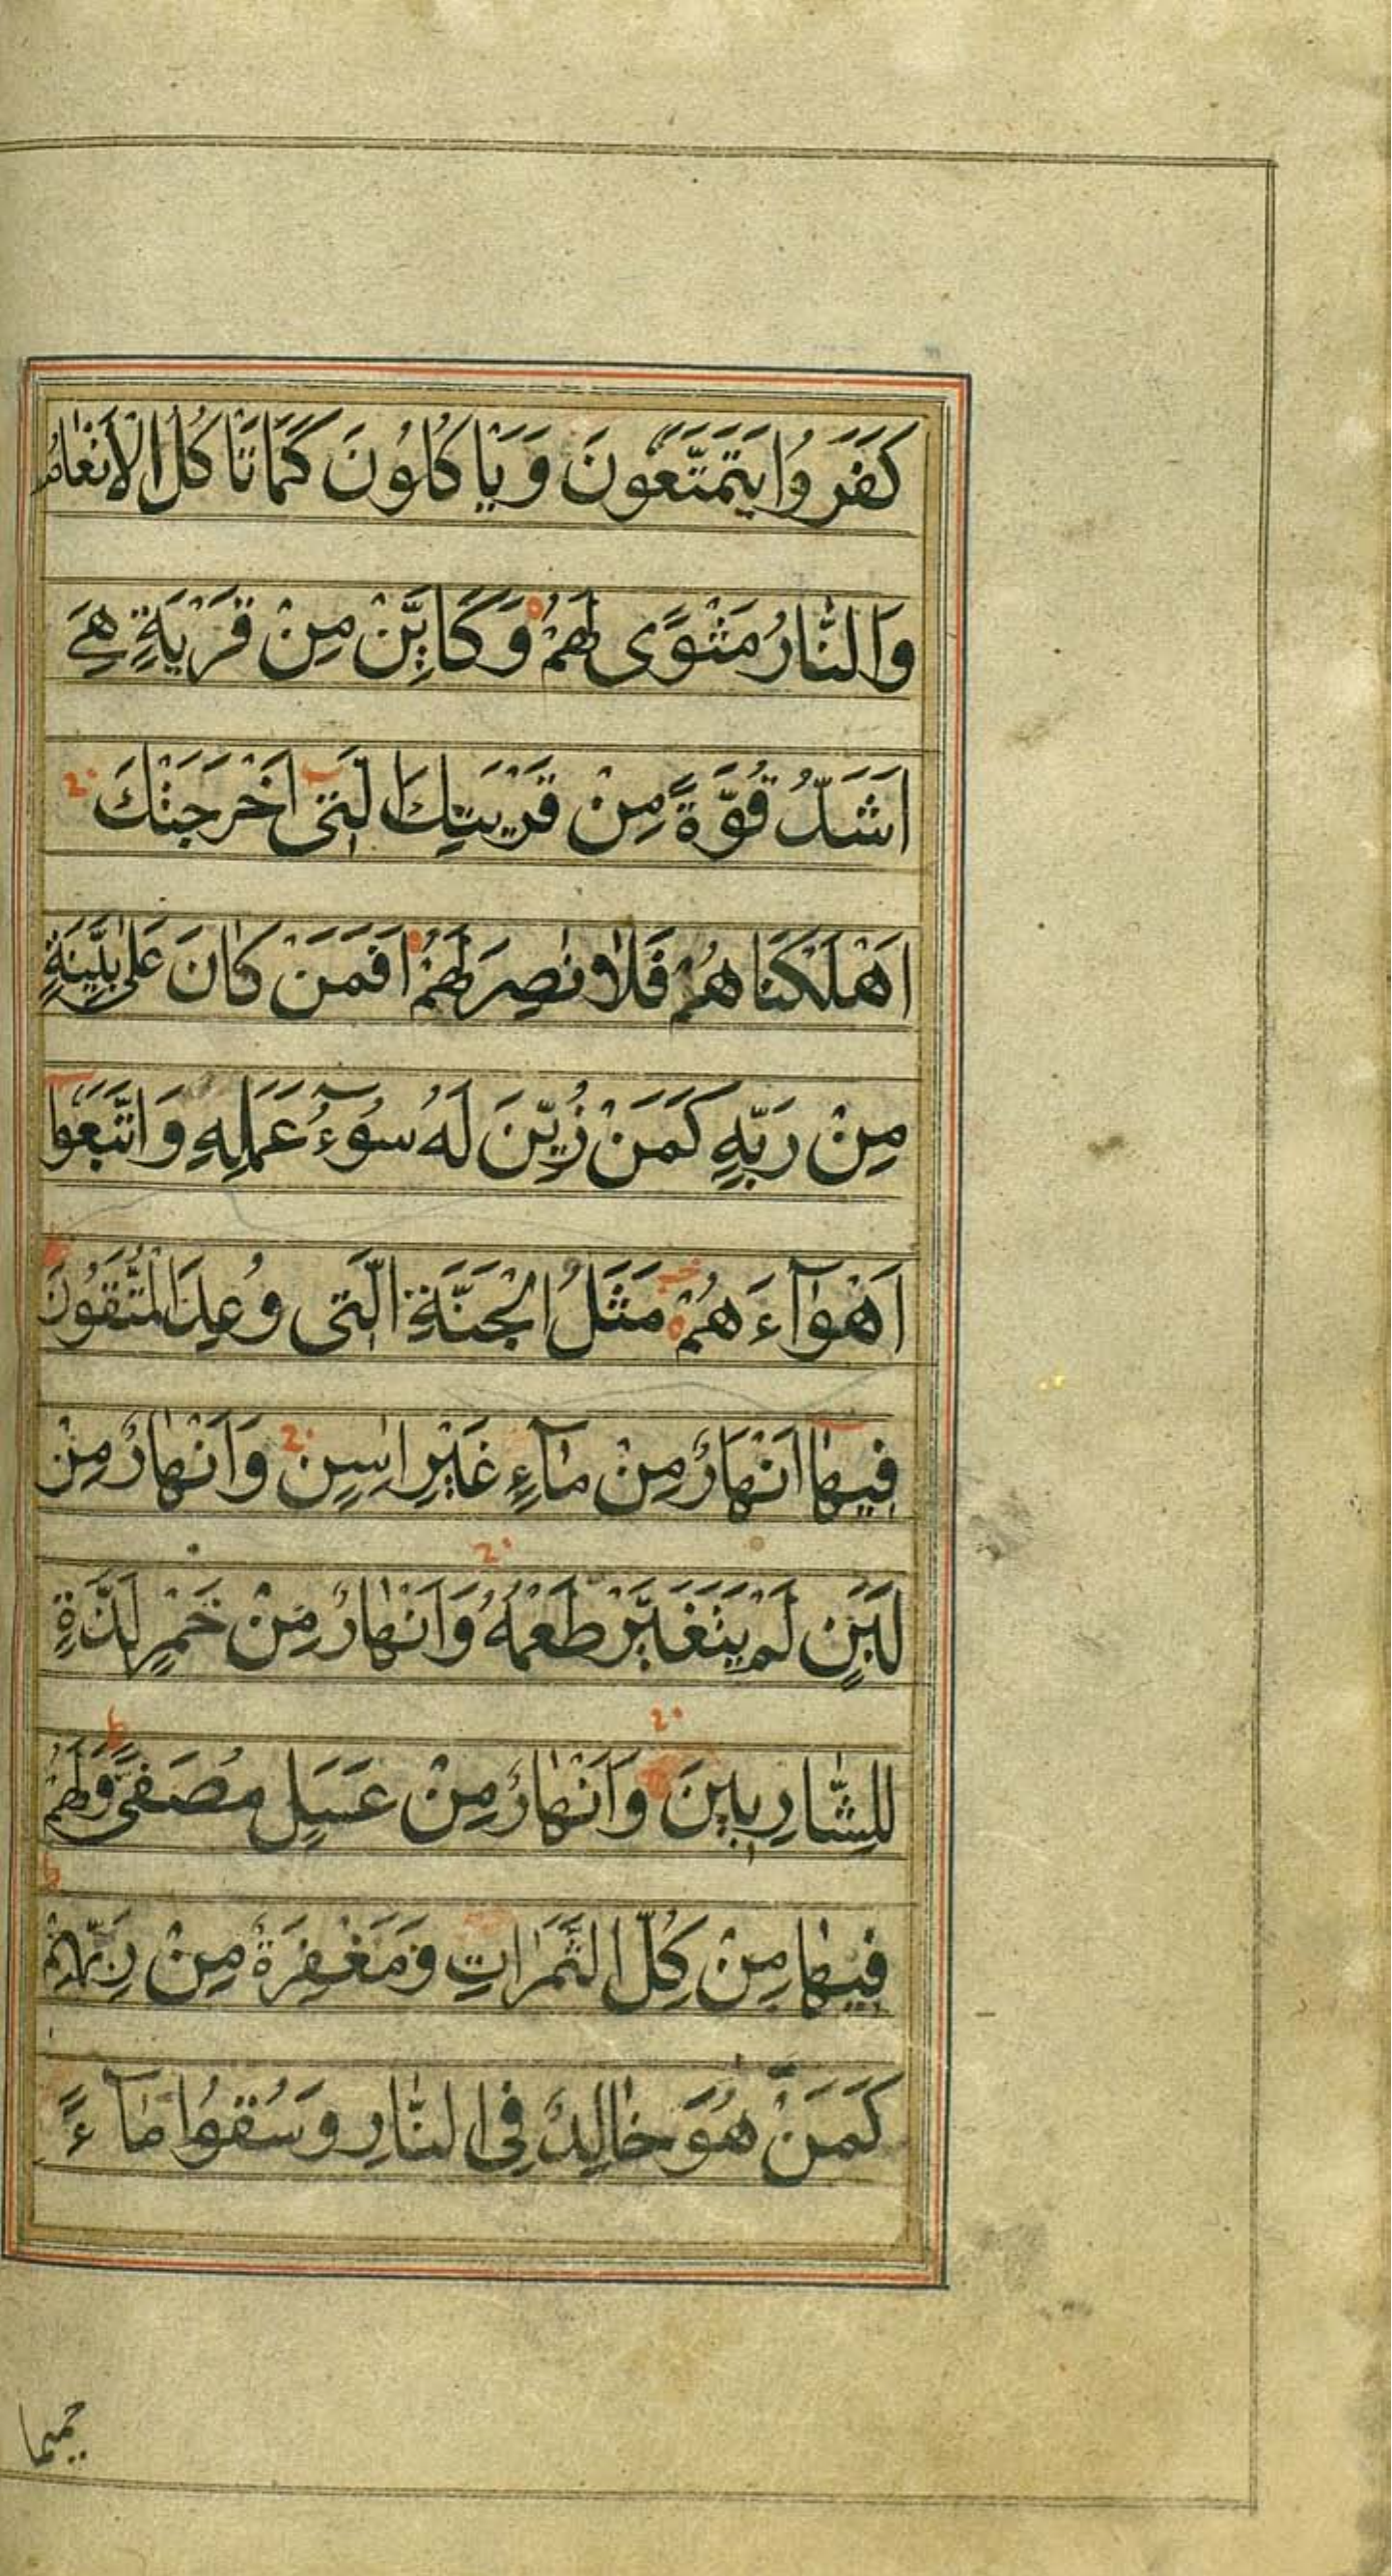 كَفَرُوا يَتَمَتَّعُونَ وَيَأْكُلُونَ كَمَا تَأْكُلُ الْأَنْعَامُ
وَالنَّارُ مَثْوًى لَهُمْ وَكَايِّنْ مِنْ قَرْيَةٍ هِيَ
اَشَدُّ قُوَّةً مِنْ قَرْيَتِكَ الَّتِى اَخْرَجَتْكَ
اَهْلَكْنَاهُمْ فَلَا نَاصِرَ لَهُمْ اَفَمَنْ كَانَ عَلَى بَيِّنَةٍ
مِنْ رَبِّهِ كَمَنْ زُيِّنَ لَهُ سُوۤءُ عَمَلِهِ وَاتَّبَعُوا
اَهْوَآءَهُمْ مَثَلُ الْجَنَّةِ الَّتِى وُعِدَ الْمُتَّقُونَ
فِيهَا اَنْهَارٌ مِنْ مَآءٍ غَيْرِ اسِنٍ وَاَنْهَارٌ مِنْ
لَبَنٍ لَمْ يَتَغَيَّرْ طَعْمُهُ وَاَنْهَارٌ مِنْ خَمْرٍ لَذَّةٍ
لِلشَّارِبِينَ وَاَنْهَارٌ مِنْ عَسَلٍ مُصَفًّى وَلَهُمْ
فِيهَا مِنْ كُلِّ الثَّمَرَاتِ وَمَغْفِرَةٌ مِنْ رَبِّهِمْ
كَمَنْ هُوَ خَالِدٌ فِى النَّارِ وَسُقُوا مَآءً
حميما